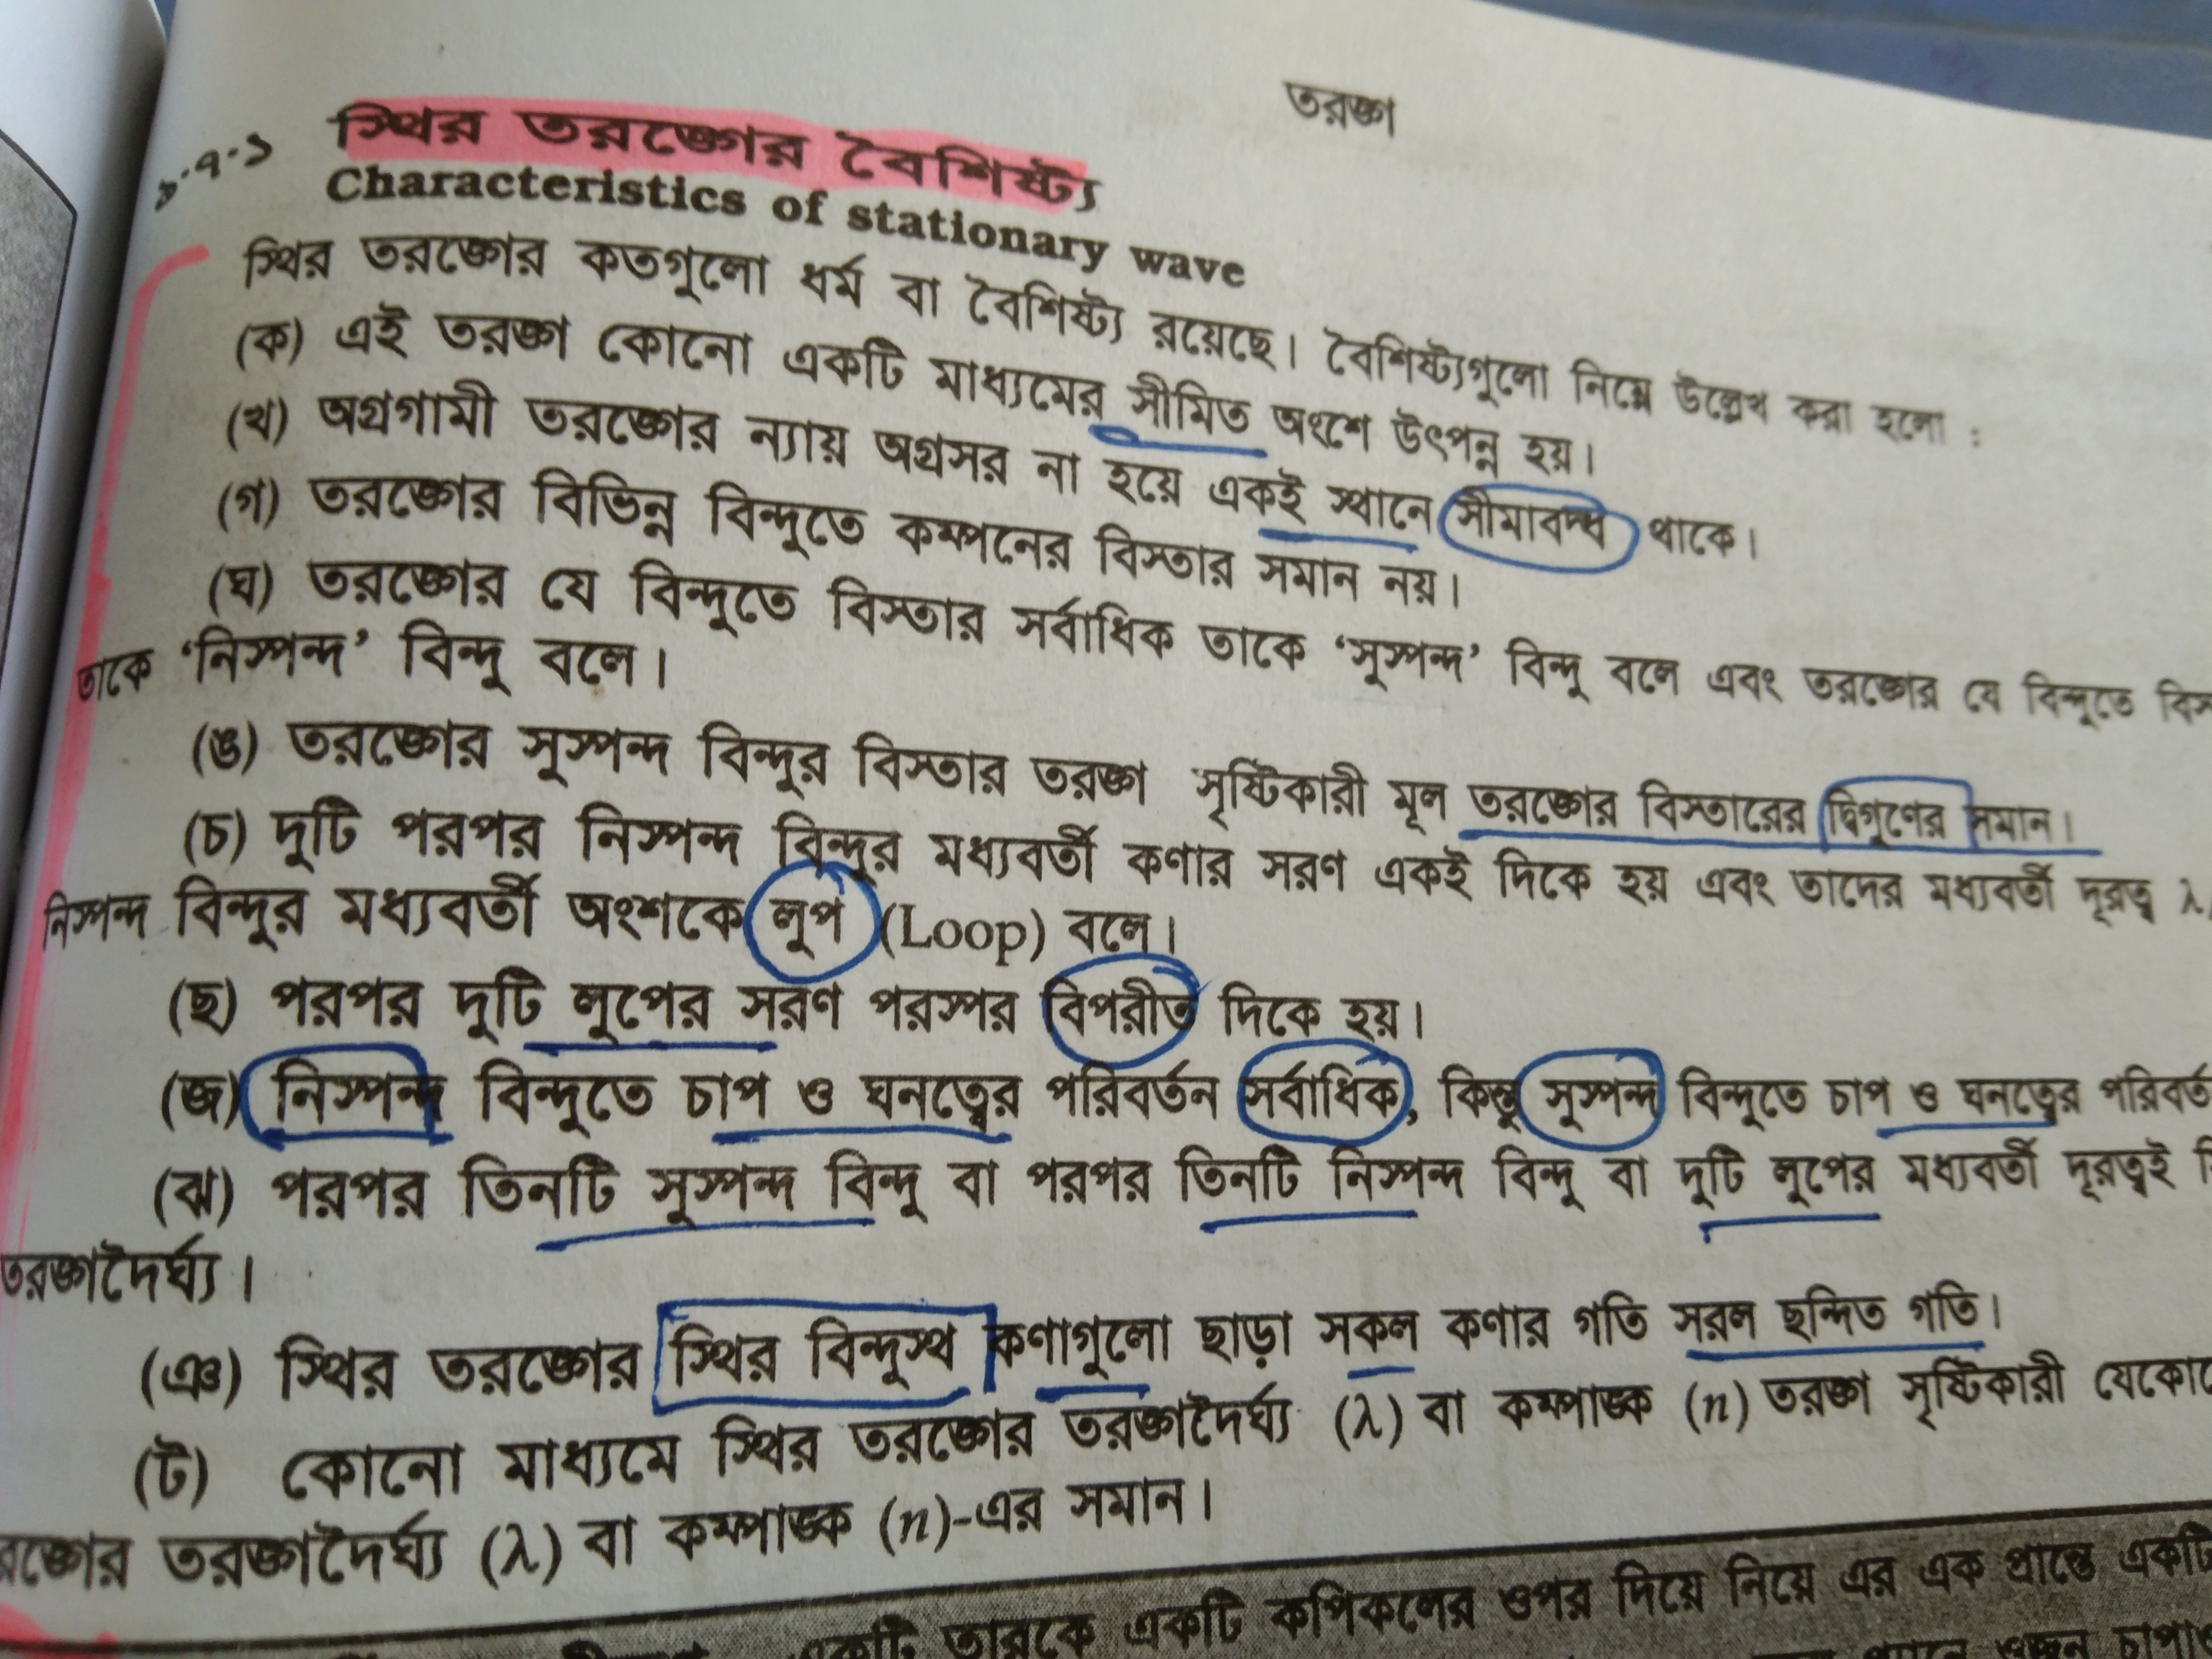 তরঙ্গ
৮.৭.১ স্থির তরঙ্গের বৈশিষ্ট্য
Characteristics of stationary wave
স্থির তরঙ্গের কতগুলো ধর্ম বা বৈশিষ্ট্য রয়েছে। বৈশিষ্ট্যগুলো নিম্নে উল্লেখ করা হলো :
(ক) এই তরঙ্গ কোনো একটি মাধ্যমের সীমিত অংশে উৎপন্ন হয়।
(খ) অগ্রগামী তরঙ্গের ন্যায় অগ্রসর না হয়ে একই স্থানে সীমাবদ্ধ থাকে।
(গ) তরঙ্গের বিভিন্ন বিন্দুতে কম্পনের বিস্তার সমান নয়।
(ঘ) তরঙ্গের যে বিন্দুতে বিস্তার সর্বাধিক তাকে ‘সুস্পন্দ’ বিন্দু বলে এবং তরঙ্গের যে বিন্দুতে
তাকে ‘নিস্পন্দ’ বিন্দু বলে।
(ঙ) তরঙ্গের সুস্পন্দ বিন্দুর বিস্তার তরঙ্গ সৃষ্টিকারী মূল তরঙ্গের বিস্তারের দ্বিগুণের সমান।
(চ) দুটি পরপর নিস্পন্দ বিন্দুর মধ্যবর্তী কণার সরণ একই দিকে হয় এবং তাদের মধ্যবর্তী দূরত্ব λ
নিস্পন্দ বিন্দুর মধ্যবর্তী অংশকে লুপ (Loop) বলে।
(ছ) পরপর দুটি লুপের সরণ পরস্পর বিপরীত দিকে হয়।
(জ) নিস্পন্দ বিন্দুতে চাপ ও ঘনত্বের পরিবর্তন সর্বাধিক, কিন্তু সুস্পন্দ বিন্দুতে চাপ ও ঘনত্বের
(ঝ) পরপর তিনটি সুস্পন্দ বিন্দু বা পরপর তিনটি নিস্পন্দ বিন্দু বা দুটি লুপের মধ্যবর্তী দূরত্বই
তরঙ্গদৈর্ঘ্য।
(ঞ) স্থির তরঙ্গের স্থির বিন্দুস্থ কণাগুলো ছাড়া সকল কণার গতি সরল ছন্দিত গতি।
(ট) কোনো মাধ্যমে স্থির তরঙ্গের তরঙ্গদৈর্ঘ্য (λ) বা কম্পাঙ্ক (n) তরঙ্গ সৃষ্টিকারী
তরঙ্গদৈর্ঘ্য (λ) বা কম্পাঙ্ক (n)-এর সমান।
একটি তারকে একটি কপিকলের ওপর দিয়ে নিয়ে এর এক প্রান্তে একটি
ওজন